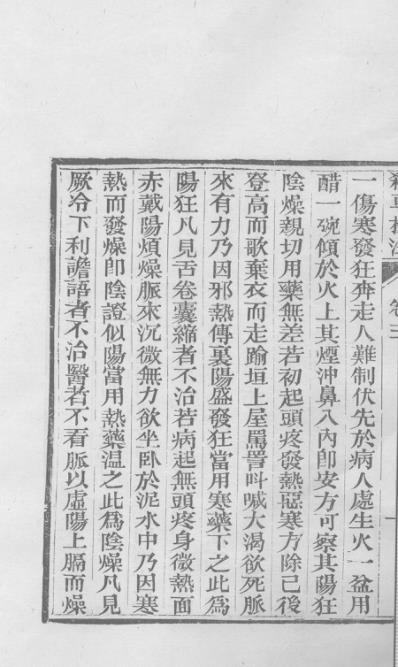 卷三
一傷寒發狂奔走人難制伏先於病人處生火一盆用
醋一碗傾於火上其煙沖鼻入內卽安方可察其陽狂
陰燥親切用藥無差若初起頭疼發熱惡寒方除已後
登高而歌棄衣而走踰垣上屋罵詈叫喊大渴欲死脈
來有力乃因邪熱傳裏陽盛發狂當用寒藥下之此爲
陽狂凡見舌卷囊縮者不治若病起無頭疼身微熱面
赤戴陽煩燥脈來沉微無力欲坐卧於泥水中乃因寒
熱而發燥卽陰證似陽當用熱藥温之此爲陰燥凡見
厥冷下利譫語者不治醫者不看脈以虛陽上膈而燥